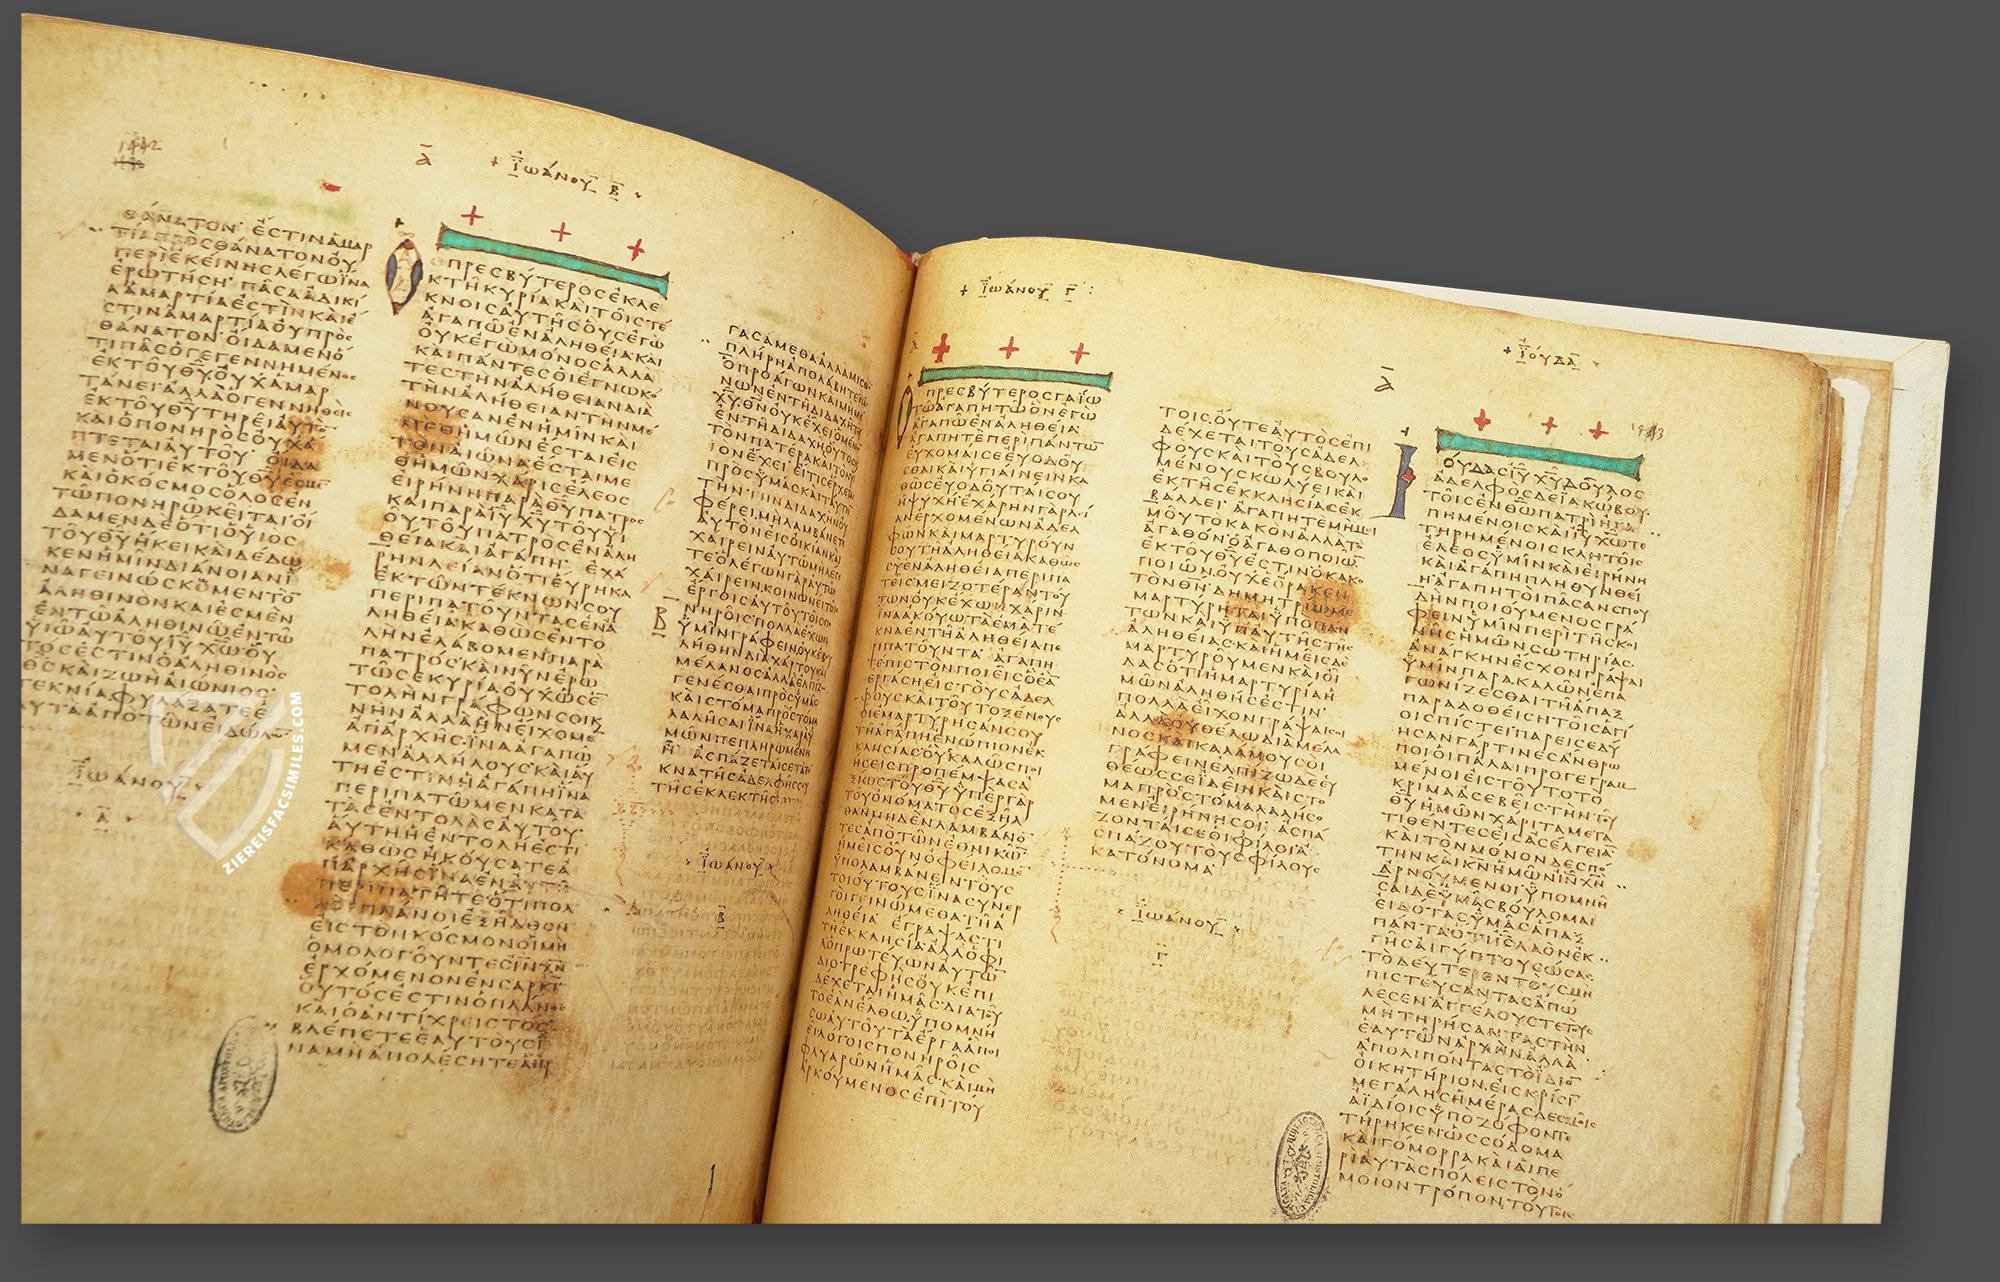 1442
Ᾱ
+ ΙΩΑΝΟΥ Β̄
ΘΑΝΑΤΟΝ ΕΣΤΙΝ ΑΜΑΡ
ΤΙΑ ΠΡΟΣ ΘΑΝΑΤΟΝ ΟΥ
ΠΕΡΙ ΕΚΕΙΝΗΣ ΛΕΓΩ ΙΝΑ
ΕΡΩΤΗΣΗ ΠΑΣΑ ΑΔΙΚΙ
Α ΑΜΑΡΤΙΑ ΕΣΤΙΝ ΚΑΙ Ε
ΣΤΙΝ ΑΜΑΡΤΙΑ ΟΥ ΠΡΟΣ
ΘΑΝΑΤΟΝ ΟΙΔΑΜΕΝ Ο
ΤΙ ΠΑΣ Ο ΓΕΓΕΝΝΗΜΕΝΟΣ
ΕΚ ΤΟΥ ΘΥ ΟΥΧ ΑΜΑΡ
ΤΑΝΕΙ ΑΛΛΑ Ο ΓΕΝΝΗΘΕΙΣ
ΕΚ ΤΟΥ ΘΥ ΤΗΡΕΙ ΑΥΤΟ
ΚΑΙ Ο ΠΟΝΗΡΟΣ ΟΥΧ Α
ΠΤΕΤΑΙ ΑΥΤΟΥ ΟΙΔΑ
ΜΕΝ ΟΤΙ ΕΚ ΤΟΥ ΘΥ ΕΣΜΕ
ΚΑΙ Ο ΚΟΣΜΟΣ ΟΛΟΣ ΕΝ
ΤΩ ΠΟΝΗΡΩ ΚΕΙΤΑΙ ΟΙ
ΔΑΜΕΝ ΔΕ ΟΤΙ Ο ΥΙΟΣ
ΤΟΥ ΘΥ ΗΚΕΙ ΚΑΙ ΔΕΔΩ
ΚΕΝ ΗΜΙΝ ΔΙΑΝΟΙΑΝ Ι
ΝΑ ΓΕΙΝΩΣΚΟΜΕΝ ΤΟ
ΑΛΗΘΙΝΟΝ ΚΑΙ ΕΣΜΕΝ
ΕΝ ΤΩ ΑΛΗΘΙΝΩ ΕΝ ΤΩ
ΥΙΩ ΑΥΤΟΥ ΙΥ ΧΩ ΟΥ
ΤΟΣ ΕΣΤΙΝ Ο ΑΛΗΘΙΝΟΣ
ΘΣ ΚΑΙ ΖΩΗ ΑΙΩΝΙΟΣ
ΤΕΚΝΙΑ ΦΥΛΑΞΑΤΕ Ε
ΑΥΤΑ ΑΠΟ ΤΩΝ ΕΙΔΩΛΩ
ΙΩΑΝΟΥ
Ᾱ
Ο ΠΡΕΣΒΥΤΕΡΟΣ ΕΚΛΕ
ΚΤΗ ΚΥΡΙΑ ΚΑΙ ΤΟΙΣ ΤΕ
ΚΝΟΙΣ ΑΥΤΗΣ ΟΥΣ ΕΓΩ
ΑΓΑΠΩ ΕΝ ΑΛΗΘΕΙΑ ΚΑΙ
ΟΥΚ ΕΓΩ ΜΟΝΟΣ ΑΛΛΑ
ΚΑΙ ΠΑΝΤΕΣ ΟΙ ΕΓΝΩΚΟ
ΤΕΣ ΤΗΝ ΑΛΗΘΕΙΑ
ΤΗΝ ΑΛΗΘΕΙΑΝ ΤΗΝ ΜΕ
ΝΟΥΣΑΝ ΕΝ ΗΜΙΝ ΚΑΙ
ΜΕΘ ΗΜΩΝ ΕΣΤΑΙ ΕΙΣ
ΤΟΝ ΑΙΩΝΑ ΕΣΤΑΙ ΜΕ
Θ ΗΜΩΝ ΧΑΡΙΣ ΕΛΕΟΣ
ΕΙΡΗΝΗ ΠΑΡΑ ΘΥ ΠΑΤΡΟΣ
ΚΑΙ ΠΑΡΑ ΙΥ ΧΥ ΤΟΥ ΥΙ
ΟΥ ΤΟΥ ΠΑΤΡΟΣ ΕΝ ΑΛΗ
ΘΕΙΑ ΚΑΙ ΑΓΑΠΗ ΕΧΑ
ΡΗΝ ΛΕΙΑΝ ΟΤΙ ΕΥΡΗΚΑ
ΕΚ ΤΩΝ ΤΕΚΝΩΝ ΣΟΥ
ΠΕΡΙΠΑΤΟΥΝΤΑΣ ΕΝ Α
ΛΗΘΕΙΑ ΚΑΘΩΣ ΕΝΤΟ
ΛΗΝ ΕΛΑΒΟΜΕΝ ΠΑΡΑ
ΠΑΤΡΟΣ ΚΑΙ ΝΥΝ ΕΡΩ
ΤΩ ΣΕ ΚΥΡΙΑ ΟΥΧ ΩΣ Ε
ΤΟΛΗΝ ΓΡΑΦΩΝ ΣΟΙ Κ
ΝΗΝ ΑΛΛΑ ΗΝ ΕΙΧΟΜΕ
ΑΠ ΑΡΧΗΣ ΙΝΑ ΑΓΑΠΩ
ΜΕΝ ΑΛΛΗΛΟΥΣ ΚΑΙ ΑΥ
ΤΗ ΕΣΤΙΝ Η ΑΓΑΠΗ ΙΝΑ
ΠΕΡΙΠΑΤΩΜΕΝ ΚΑΤΑ
ΤΑΣ ΕΝΤΟΛΑΣ ΑΥΤΟΥ
ΑΥΤΗ Η ΕΝΤΟΛΗ ΕΣΤΙ
ΚΑΘΩΣ ΗΚΟΥΣΑΤΕ Α
Π ΑΡΧΗΣ ΙΝΑ ΕΝ ΑΥΤΗ
ΠΕΡΙΠΑΤΗΤΕ ΟΤΙ ΠΟΛ
ΛΟΙ ΠΛΑΝΟΙ ΕΞΗΛΘΟΝ
ΕΙΣ ΤΟΝ ΚΟΣΜΟΝ ΟΙ ΜΗ
ΟΜΟΛΟΓΟΥΝΤΕΣ ΙΝ ΧΝ
ΕΡΧΟΜΕΝΟΝ ΕΝ ΣΑΡΚΙ
ΟΥΤΟΣ ΕΣΤΙΝ Ο ΠΛΑΝΟΣ
ΚΑΙ Ο ΑΝΤΙΧΡΕΙΣΤΟΣ
ΒΛΕΠΕΤΕ ΕΑΥΤΟΥΣ Ι
ΝΑ ΜΗ ΑΠΟΛΕΣΗΤΕ Α ΗΡ
ΓΑΣΑΜΕΘΑ ΑΛΛΑ ΜΙΣΘΟ
ΠΛΗΡΗ ΑΠΟΛΑΒΗΤΕ ΠΑΣ
Ο ΠΡΟΑΓΩΝ ΚΑΙ ΜΗ ΜΕ
ΝΩΝ ΕΝ ΤΗ ΔΙΔΑΧΗ ΤΟΥ
ΧΥ ΘΝ ΟΥΚ ΕΧΕΙ Ο ΜΕΝΩ
ΕΝ ΤΗ ΔΙΔΑΧΗ ΟΥΤΟΣ ΚΑΙ
ΤΟΝ ΠΑΤΕΡΑ ΚΑΙ ΤΟΝ ΥΙ
ΟΝ ΕΧΕΙ ΕΙ ΤΙΣ ΕΡΧΕΤΑΙ
ΠΡΟΣ ΥΜΑΣ ΚΑΙ ΤΑΥΤΗ
ΤΗΝ ΔΙΔΑΧΗΝ ΟΥ
ΦΕΡΕΙ ΜΗ ΛΑΜΒΑΝΕΤΕ
ΑΥΤΟΝ ΕΙΣ ΟΙΚΙΑΝ ΚΑΙ
ΧΑΙΡΕΙΝ ΑΥΤΩ ΜΗ ΛΕΓΕ
ΤΕ Ο ΛΕΓΩΝ ΓΑΡ ΑΥΤΩ
ΧΑΙΡΕΙΝ ΚΟΙΝΩΝΕΙ ΤΟΙΣ
ΕΡΓΟΙΣ ΑΥΤΟΥ ΤΟΙΣ ΠΟ
ΝΗΡΟΙΣ ΠΟΛΛΑ ΕΧΩΝ
ΥΜΙΝ ΓΡΑΦΕΙΝ ΟΥΚ ΕΒΟΥ
ΛΗΘΗΝ ΔΙΑ ΧΑΡΤΟΥ ΚΑΙ
ΜΕΛΑΝΟΣ ΑΛΛΑ ΕΛΠΙΖΩ
ΓΕΝΕΣΘΑΙ ΠΡΟΣ ΥΜΑΣ
ΚΑΙ ΣΤΟΜΑ ΠΡΟΣ ΣΤΟΜΑ
ΛΑΛΗΣΑΙ ΙΝΑ Η ΧΑΡΑ Υ
ΜΩΝ ΠΕΠΛΗΡΩΜΕΝΗ
Η ΑΣΠΑΖΕΤΑΙ ΣΕ ΤΑ ΤΕ
ΚΝΑ ΤΗΣ ΑΔΕΛΦΗΣ ΣΟΥ
ΤΗΣ ΕΚΛΕΚΤΗΣ
Β̄
ΙΩΑΝΟΥ
Β̄
+ ΙΩΑΝΟΥ Γ̄
Ο ΠΡΕΣΒΥΤΕΡΟΣ ΓΑΙΩ
ΤΩ ΑΓΑΠΗΤΩ ΟΝ ΕΓΩ
ΑΓΑΠΩ ΕΝ ΑΛΗΘΕΙΑ
ΑΓΑΠΗΤΕ ΠΕΡΙ ΠΑΝΤΩ
ΕΥΧΟΜΑΙ ΣΕ ΕΥΟΔΟΥ
ΣΘΑΙ ΚΑΙ ΥΓΙΑΙΝΕΙΝ ΚΑ
ΘΩΣ ΕΥΟΔΟΥΤΑΙ ΣΟΥ
Η ΨΥΧΗ ΕΧΑΡΗΝ ΓΑΡ ΛΕΙ
ΑΝ ΕΡΧΟΜΕΝΩΝ ΑΔΕΛ
ΦΩΝ ΚΑΙ ΜΑΡΤΥΡΟΥΝ
ΤΩΝ ΣΟΥ ΤΗ ΑΛΗΘΕΙΑ ΚΑΘΩΣ
ΣΥ ΕΝ ΑΛΗΘΕΙΑ ΠΕΡΙΠΑ
ΤΕΙΣ ΜΕΙΖΟΤΕΡΑΝ ΤΟΥ
ΤΩΝ ΟΥΚ ΕΧΩ ΧΑΡΙΝ
ΙΝΑ ΑΚΟΥΩ ΤΑ ΕΜΑ ΤΕ
ΚΝΑ ΕΝ ΤΗ ΑΛΗΘΕΙΑ ΠΕ
ΡΙΠΑΤΟΥΝΤΑ ΑΓΑΠΗ
ΤΕ ΠΙΣΤΟΝ ΠΟΙΕΙΣ Ο ΕΑ
ΕΡΓΑΣΗ ΕΙΣ ΤΟΥΣ ΑΔΕΛ
ΦΟΥΣ ΚΑΙ ΤΟΥΤΟ ΞΕΝΟΥΣ
ΟΙ ΕΜΑΡΤΥΡΗΣΑΝ ΣΟΥ
ΤΗ ΑΓΑΠΗ ΕΝΩΠΙΟΝ ΕΚ
ΚΛΗΣΙΑΣ ΟΥΣ ΚΑΛΩΣ ΠΟΙ
ΗΣΕΙΣ ΠΡΟΠΕΜΨΑΣ Α
ΞΙΩΣ ΤΟΥ ΘΥ ΥΠΕΡ ΓΑΡ
ΤΟΥ ΟΝΟΜΑΤΟΣ ΕΞΗΛ
ΘΑΝ ΜΗΔΕΝ ΛΑΜΒΑΝΟ
ΤΕΣ ΑΠΟ ΤΩΝ ΕΘΝΙΚΩ
ΗΜΕΙΣ ΟΥΝ ΟΦΕΙΛΟΜΕ
ΥΠΟΛΑΜΒΑΝΕΙΝ ΤΟΥΣ
ΤΟΙΟΥΤΟΥΣ ΙΝΑ ΣΥΝΕΡ
ΓΟΙ ΓΕΙΝΩΜΕΘΑ ΤΗ Α
ΛΗΘΕΙΑ ΕΓΡΑΨΑΣ ΤΙ
ΤΗ ΕΚΚΛΗΣΙΑ ΑΛΛ Ο ΦΙ
ΛΟΠΡΩΤΕΥΩΝ ΑΥΤΩ
ΔΙΟΤΡΕΦΗΣ ΟΥΚ ΕΠΙ
ΔΕΧΕΤΑΙ ΗΜΑΣ ΔΙΑ ΤΟΥ
ΤΟ ΕΑΝ ΕΛΘΩ ΥΠΟΜΝΗ
ΣΩ ΑΥΤΟΥ ΤΑ ΕΡΓΑ Α ΠΟΙ
ΕΙ ΛΟΓΟΙΣ ΠΟΝΗΡΟΙΣ
ΦΛΥΑΡΩΝ ΗΜΑΣ ΚΑΙ ΜΗ
ΑΡΚΟΥΜΕΝΟΣ ΕΠΙ ΤΟΥ
ΤΟΙΣ ΟΥΤΕ ΑΥΤΟΣ ΕΠΙ
ΔΕΧΕΤΑΙ ΤΟΥΣ ΑΔΕΛ
ΦΟΥΣ ΚΑΙ ΤΟΥΣ ΒΟΥΛΟ
ΜΕΝΟΥΣ ΚΩΛΥΕΙ ΚΑΙ
ΕΚ ΤΗΣ ΕΚΚΛΗΣΙΑΣ ΕΚ
ΒΑΛΛΕΙ ΑΓΑΠΗΤΕ ΜΗ ΜΙ
ΜΟΥ ΤΟ ΚΑΚΟΝ ΑΛΛΑ ΤΟ
ΑΓΑΘΟΝ Ο ΑΓΑΘΟΠΟΙΩ
ΕΚ ΤΟΥ ΘΥ ΕΣΤΙΝ Ο ΚΑΚΟ
ΠΟΙΩΝ ΟΥΧ ΕΟΡΑΚΕΝ
ΤΟΝ ΘΝ ΔΗΜΗΤΡΙΩ ΜΕ
ΜΑΡΤΥΡΗΤΑΙ ΥΠΟ ΠΑΝ
ΤΩΝ ΚΑΙ ΥΠ ΑΥΤΗΣ ΤΗΣ
ΑΛΗΘΕΙΑΣ ΚΑΙ ΗΜΕΙΣ ΔΕ
ΜΑΡΤΥΡΟΥΜΕΝ ΚΑΙ ΟΙ
ΔΑΣ ΟΤΙ Η ΜΑΡΤΥΡΙΑ Η
ΜΩΝ ΑΛΗΘΗΣ ΕΣΤΙΝ
ΠΟΛΛΑ ΕΙΧΟΝ ΓΡΑΨΑΙ ΣΟΙ
ΑΛΛ ΟΥ ΘΕΛΩ ΔΙΑ ΜΕΛΑ
ΝΟΣ ΚΑΙ ΚΑΛΑΜΟΥ ΣΟΙ
ΓΡΑΦΕΙΝ ΕΛΠΙΖΩ ΔΕ ΕΥ
ΘΕΩΣ ΣΕ ΙΔΕΙΝ ΚΑΙ ΣΤΟ
ΜΑ ΠΡΟΣ ΣΤΟΜΑ ΛΑΛΗΣΟ
ΜΕΝ ΕΙΡΗΝΗ ΣΟΙ ΑΣΠΑ
ΖΟΝΤΑΙ ΣΕ ΟΙ ΦΙΛΟΙ Α
ΣΠΑΖΟΥ ΤΟΥΣ ΦΙΛΟΥΣ
ΚΑΤ ΟΝΟΜΑ
ΙΩΑΝΟΥ
Γ̄
+ ΙΟΥΔΑ
1443
Ᾱ
ΙΟΥΔΑΣ ΙΥ ΧΥ ΔΟΥΛΟΣ
ΑΔΕΛΦΟΣ ΔΕ ΙΑΚΩΒΟΥ
ΤΟΙΣ ΕΝ ΘΩ ΠΑΤΡΙ ΗΓΑ
ΠΗΜΕΝΟΙΣ ΚΑΙ ΙΥ ΧΩ ΤΕ
ΤΗΡΗΜΕΝΟΙΣ ΚΛΗΤΟΙΣ
ΕΛΕΟΣ ΥΜΙΝ ΚΑΙ ΕΙΡΗΝΗ
ΚΑΙ ΑΓΑΠΗ ΠΛΗΘΥΝΘΕΙ
Η ΑΓΑΠΗΤΟΙ ΠΑΣΑΝ ΣΠΟΥ
ΔΗΝ ΠΟΙΟΥΜΕΝΟΣ ΓΡΑ
ΦΕΙΝ ΥΜΙΝ ΠΕΡΙ ΤΗΣ ΚΟΙ
ΝΗΣ ΗΜΩΝ ΣΩΤΗΡΙΑΣ
ΑΝΑΓΚΗΝ ΕΣΧΟΝ ΓΡΑΨΑΙ
ΥΜΙΝ ΠΑΡΑΚΑΛΩΝ ΕΠΑ
ΓΩΝΙΖΕΣΘΑΙ ΤΗ ΑΠΑΞ
ΠΑΡΑΔΟΘΕΙΣΗ ΤΟΙΣ ΑΓΙ
ΟΙΣ ΠΙΣΤΕΙ ΠΑΡΕΙΣΕΔΥ
ΗΣΑΝ ΓΑΡ ΤΙΝΕΣ ΑΝΘΡΩ
ΠΟΙ ΟΙ ΠΑΛΑΙ ΠΡΟΓΕΓΡΑΜ
ΜΕΝΟΙ ΕΙΣ ΤΟΥΤΟ ΤΟ
ΚΡΙΜΑ ΑΣΕΒΕΙΣ ΤΗΝ ΤΟΥ
ΘΥ ΗΜΩΝ ΧΑΡΙΤΑ ΜΕΤΑ
ΤΙΘΕΝΤΕΣ ΕΙΣ ΑΣΕΛΓΕΙΑ
ΚΑΙ ΤΟΝ ΜΟΝΟΝ ΔΕΣΠΟ
ΤΗΝ ΚΑΙ ΚΝ ΗΜΩΝ ΙΝ ΧΝ
ΑΡΝΟΥΜΕΝΟΙ ΥΠΟΜΝΗ
ΣΑΙ ΔΕ ΥΜΑΣ ΒΟΥΛΟΜΑΙ
ΕΙΔΟΤΑΣ ΥΜΑΣ ΑΠΑΞ
ΠΑΝΤΑ ΟΤΙ ΙΣ ΛΑΟΝ ΕΚ
ΓΗΣ ΑΙΓΥΠΤΟΥ ΣΩΣΑΣ
ΤΟ ΔΕΥΤΕΡΟΝ ΤΟΥΣ ΜΗ
ΠΙΣΤΕΥΣΑΝΤΑΣ ΑΠΩ
ΛΕΣΕΝ ΑΓΓΕΛΟΥΣ ΤΕ ΤΟΥΣ
ΜΗ ΤΗΡΗΣΑΝΤΑΣ ΤΗΝ
ΕΑΥΤΩΝ ΑΡΧΗΝ ΑΛΛΑ
ΑΠΟΛΙΠΟΝΤΑΣ ΤΟ ΙΔΙΟ
ΟΙΚΗΤΗΡΙΟΝ ΕΙΣ ΚΡΙΣΙ
ΜΕΓΑΛΗΣ ΗΜΕΡΑΣ ΔΕΣΜΟΙΣ
ΑΙΔΙΟΙΣ ΥΠΟ ΖΟΦΟΝ ΤΕ
ΤΗΡΗΚΕΝ ΩΣ ΣΟΔΟΜΑ
ΚΑΙ ΓΟΜΟΡΡΑ ΚΑΙ ΑΙ ΠΕ
ΡΙ ΑΥΤΑΣ ΠΟΛΕΙΣ ΤΟΝ Ο
ΜΟΙΟΝ ΤΡΟΠΟΝ ΤΟΥΤΟΙΣ
ZIEREISFACSIMILES.COM